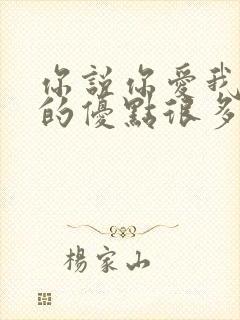 你說你愛我
的優點很多
楊家山